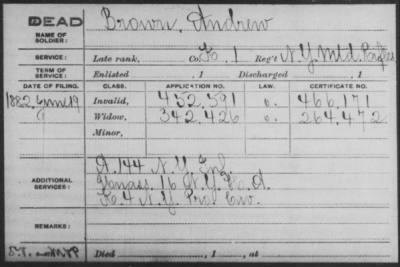 DEAD
NAME OF SOLDIER: Brown, Andrew
SERVICE: Late rank, Co. K, 1 Reg't N.Y. Mtd. Rifles
TERM OF SERVICE: Enlisted , 1 Discharged , 1
DATE OF FILING. CLASS. APPLICATION NO. LAW. CERTIFICATE NO.
1882 June 19 Invalid, 452.591 o. 466.171
Widow, 342.426 o. 264.472
Minor,
ADDITIONAL SERVICES: A. 144 N.Y. Inf.
16 N.Y. H.A.
K. 4 N.Y. Prov. Cav.
REMARKS:
Died , 1 , at